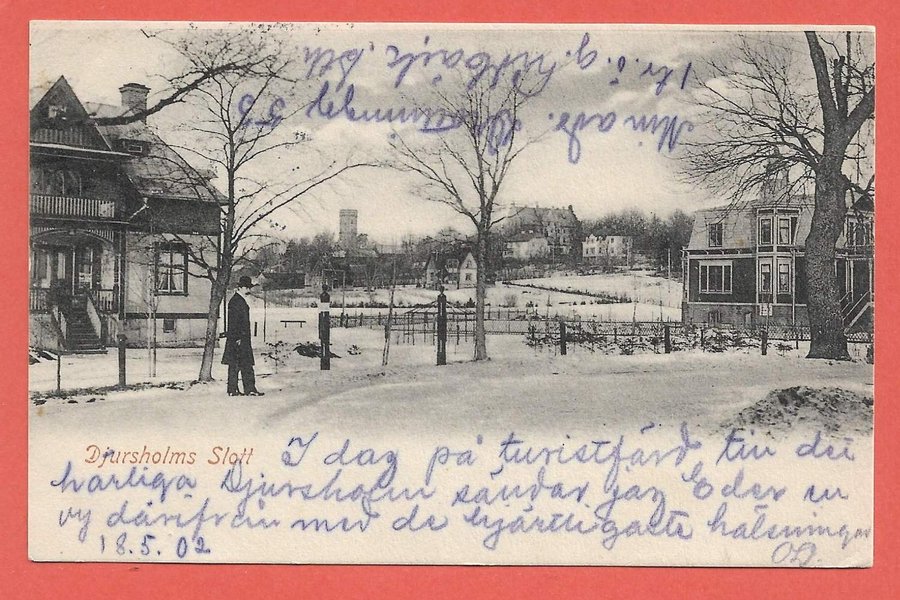 Min adr. Drottningg. 55
1 tr. ö. g.
Djursholms Slott
I dag på turistfärd till det
härliga Djursholm sändar jag Eder en
vy därifrån med de hjärtligaste hälsningar
18.5.02